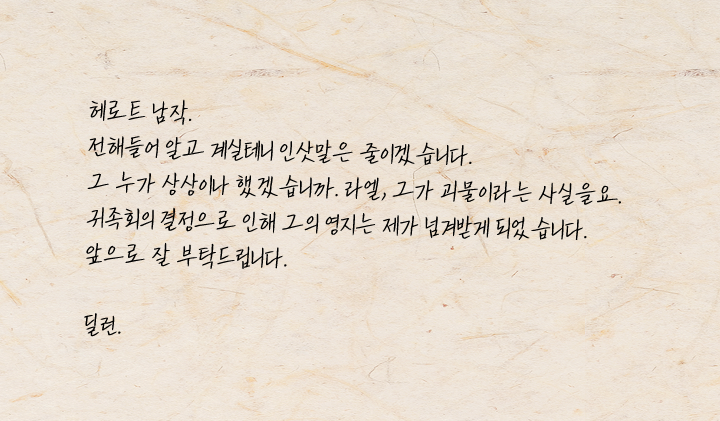 헤로트 남작.
전해들어 알고 계실테니 인삿말은 줄이겠습니다.
그 누가 상상이나 했겠습니까. 라엘, 그가 괴물이라는 사실을요.
귀족회의 결정으로 인해 그의 영지는 제가 넘겨받게 되었습니다.
앞으로 잘 부탁드립니다.
딜런.